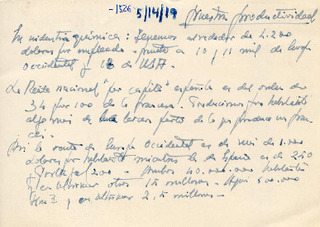 -1526 5/14/19 nuestra productividad
En industria química: tenemos alrededor de 4.200
dolares por empleado - frente a 10 y 11 mil de Europa
Occidental y 18 de USA.
La Renta nacional "per capita" española es del orden de
34 por 100 de la francesa. Producimos por habitante
algo más de una tercera parte de lo que produce un fran-
cés.
Así la renta de Europa Occidental es de más de 1.000
dolares por habitante mientras la de España es de 250
y Portugal 200 - Ambos 40.000.000 habitantes
y en últimos otros 15 millones - Aquí 500.000
Km2 y en últimos 2,15 millones -